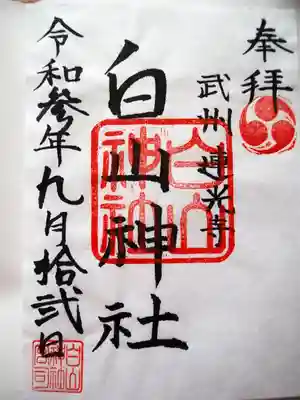 奉拝
武州 連光寺
白山神社
白山神社
令和参年九月拾弐日
白山神社宮司